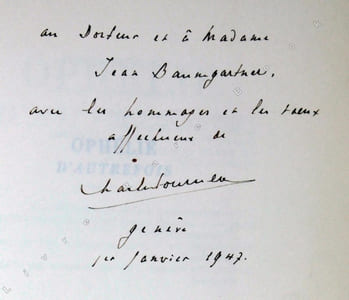 au Docteur et à Madame
Jean Baumgartner,
avec les hommages et les vœux
affectueux de
OPHÉLIE
D'AUTREFOIS
Charles Fournet
Genève
1er janvier 1947.